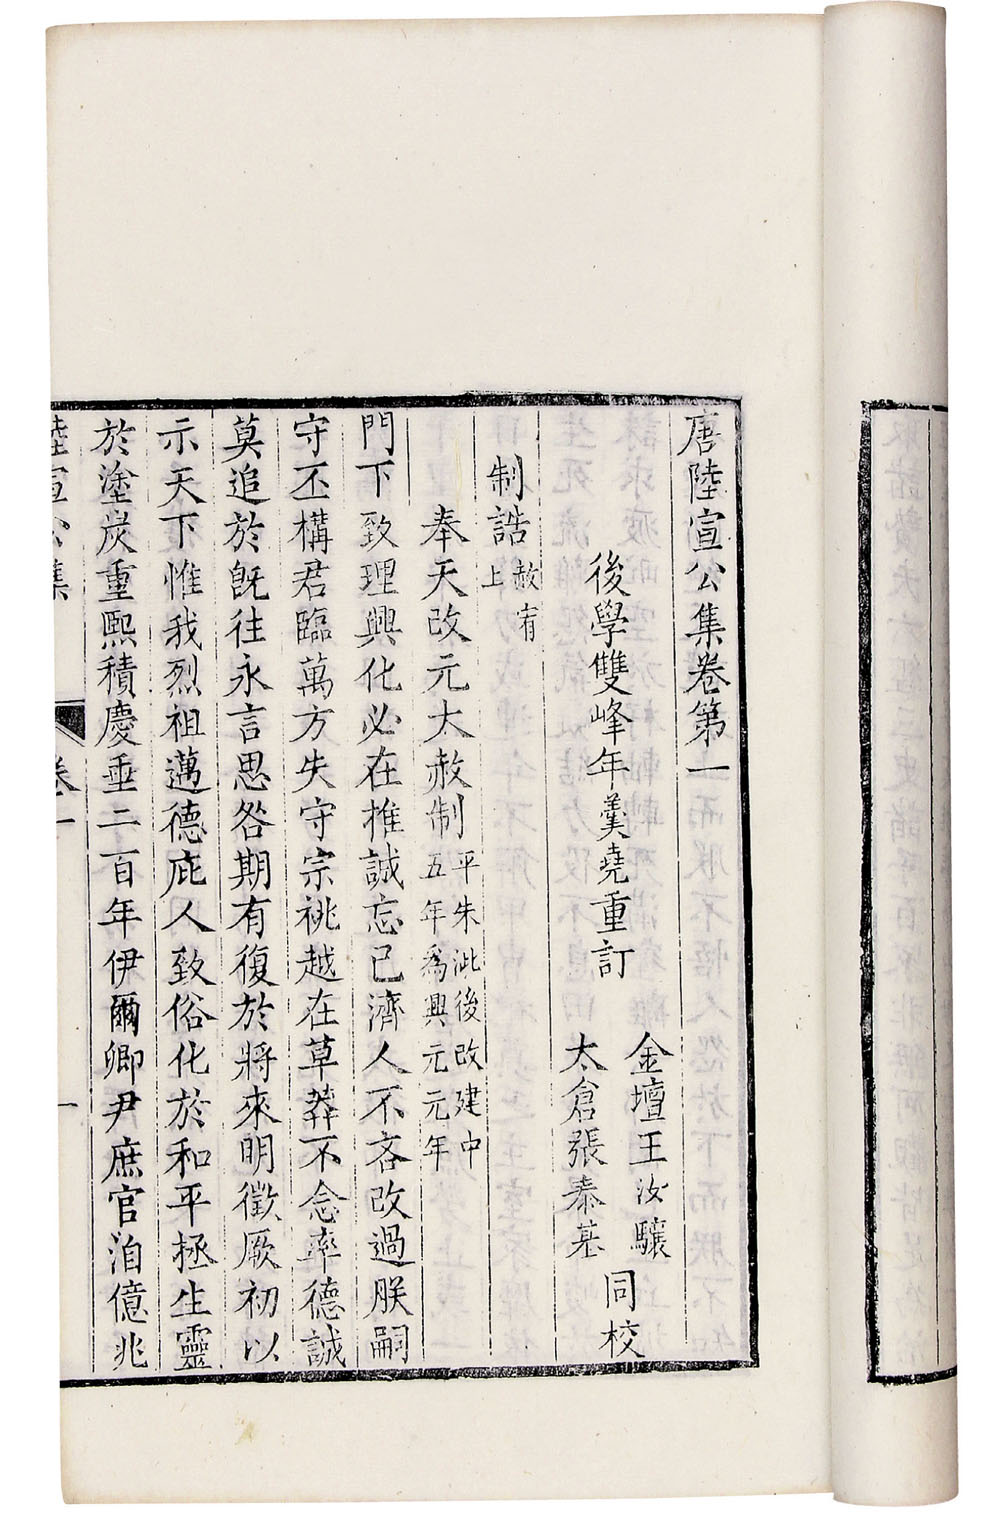 唐陸宣公集卷第一
後學雙峰年羹堯重訂
金壇王汝驤
太倉張泰基
同校
制誥
赦宥
上
奉天改元大赦制
平朱泚後改建中
五年為興元元年
門下致理興化必在推誠忘已濟人不吝改過朕嗣
守丕構君臨萬方失守宗祧越在草莽不念率德誠
莫追於旣往永言思咎期有復於將來明徵厥初以
示天下惟我烈祖邁德庇人致俗化於和平拯生靈
於塗炭重熙積慶垂二百年伊爾卿尹庶官洎億兆
陸宣公集
卷一
一